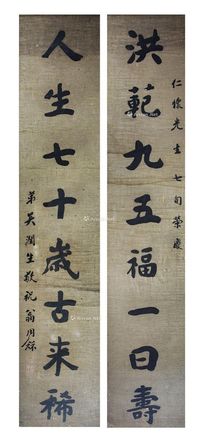 仁懷先生七旬榮慶
洪範九五福一曰壽
人生七十歲古来稀
弟吳潤生敬祝